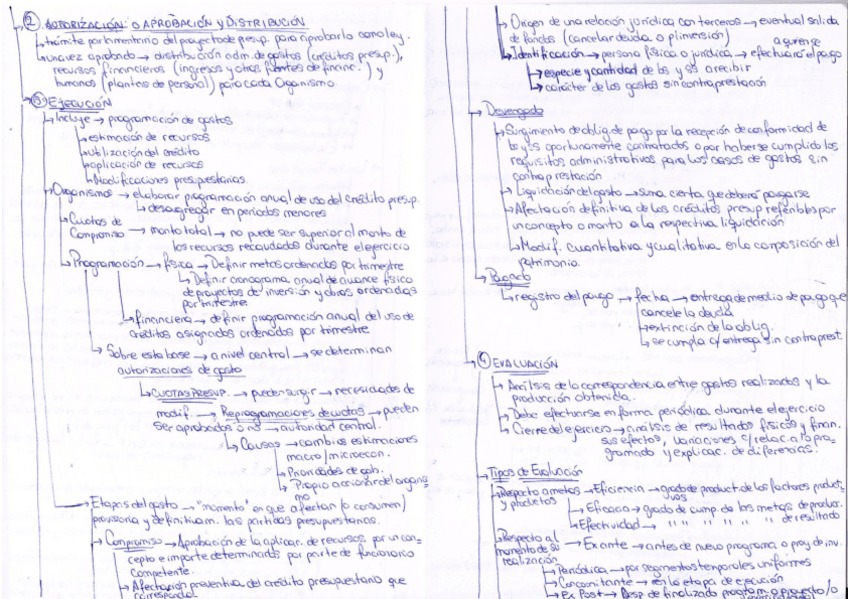 ② AUTORIZACIÓN: O APROBACIÓN Y DISTRIBUCIÓN
↳ trámite parlamentario del proyecto de presup. para aprobarlo como ley.
↳ una vez aprobado → distribución adm. de gastos (créditos presup.),
recursos financieros (ingresos y otras fuentes de financ.) y
humanos (plantas de personal) para cada Organismo.
③ EJECUCIÓN
↳ Incluye → programación de gastos
↳ estimación de recursos
↳ utilización del crédito
↳ aplicación de recursos
↳ Modificaciones presupuestarias
Organismos → elaborar programación anual de uso del crédito presup.
↳ desagregar en periodos menores
↳ Cuotas de
Compromiso → monto total → no puede ser superior al monto de
los recursos recaudados durante el ejercicio
↳ Programación → física → Definir metas ordenadas por trimestre
↳ Definir cronograma anual de avance físico
de proyectos de inversión y obras, ordenadas
por trimestre
↳ financiera → definir programación anual del uso de
créditos asignados ordenados por trimestre
↳ Sobre esta base → a nivel central → se determinan
autorizaciones de gasto
↳ CUOTAS PRESUP. → pueden surgir → necesidades de
modif. → Reprogramaciones de cuotas → pueden
ser aprobadas o no → autoridad central.
↳ Causas → cambios estimaciones
macro/microecon.
↳ Prioridades de gob.
↳ Propio accionar del organis
mo
Etapas del gasto → "momento" en que afectan (o consumen)
provisoria y definitivam. las partidas presupuestarias.
↳ Compromiso → Aprobación de la aplicac. de recursos por un con-
cepto e importe determinados por parte de funcionario
competente.
↳ Afectación preventiva del crédito presupuestario que
corresponda
↳ Origen de una relación jurídica con terceros → eventual salida
de fondos (cancelar deuda o p/inversión)
↳ Identificación → persona física o jurídica → a quien se efectuará el pago
↳ especie y cantidad de bs y ss a recibir
↳ carácter de los gastos sin contraprestación
↳ Devengado
↳ Surgimiento de oblig. de pago por la recepción de conformidad de
bs y ss oportunamente contratados o por haberse cumplido los
requisitos administrativos para los casos de gastos sin
contraprestación
↳ Liquidación del gasto → suma cierta que deberá pagarse
↳ Afectación definitiva de los créditos presup referibles por
un concepto o monto a la respectiva liquidación
↳ Modif. cuantitativa y cualitativa en la composición del
patrimonio.
↳ Pagado
↳ registro del pago → fecha → entrega de medio de pago que
cancele la deuda
↳ extinción de la oblig.
↳ se cumpla c/entrega sin contraprest.
④ EVALUACIÓN
↳ Análisis de la correspondencia entre gastos realizados y la
producción obtenida.
↳ Debe efectuarse en forma periódica durante el ejercicio
↳ Cierre del ejercicio → análisis de resultados físicos y finan.
sus efectos, variaciones c/relac. a lo pro-
gramado y explicac. de diferencias.
↳ Tipos de Evaluación
↳ Respecto a metas y productos → Eficiencia → grado de product. de los factores product
ivos
↳ Eficacia → grado de cump. de las metas de produc.
↳ Efectividad → " " " " " " de resultado
↳ Respecto al
momento de su
realización → Ex ante → antes de nuevo programa o proy de inv.
↳ Periódica → por segmentos temporales uniformes
↳ Concomitante → en la etapa de ejecución
↳ Ex Post → Desp de finalizado program. o proyecto / o